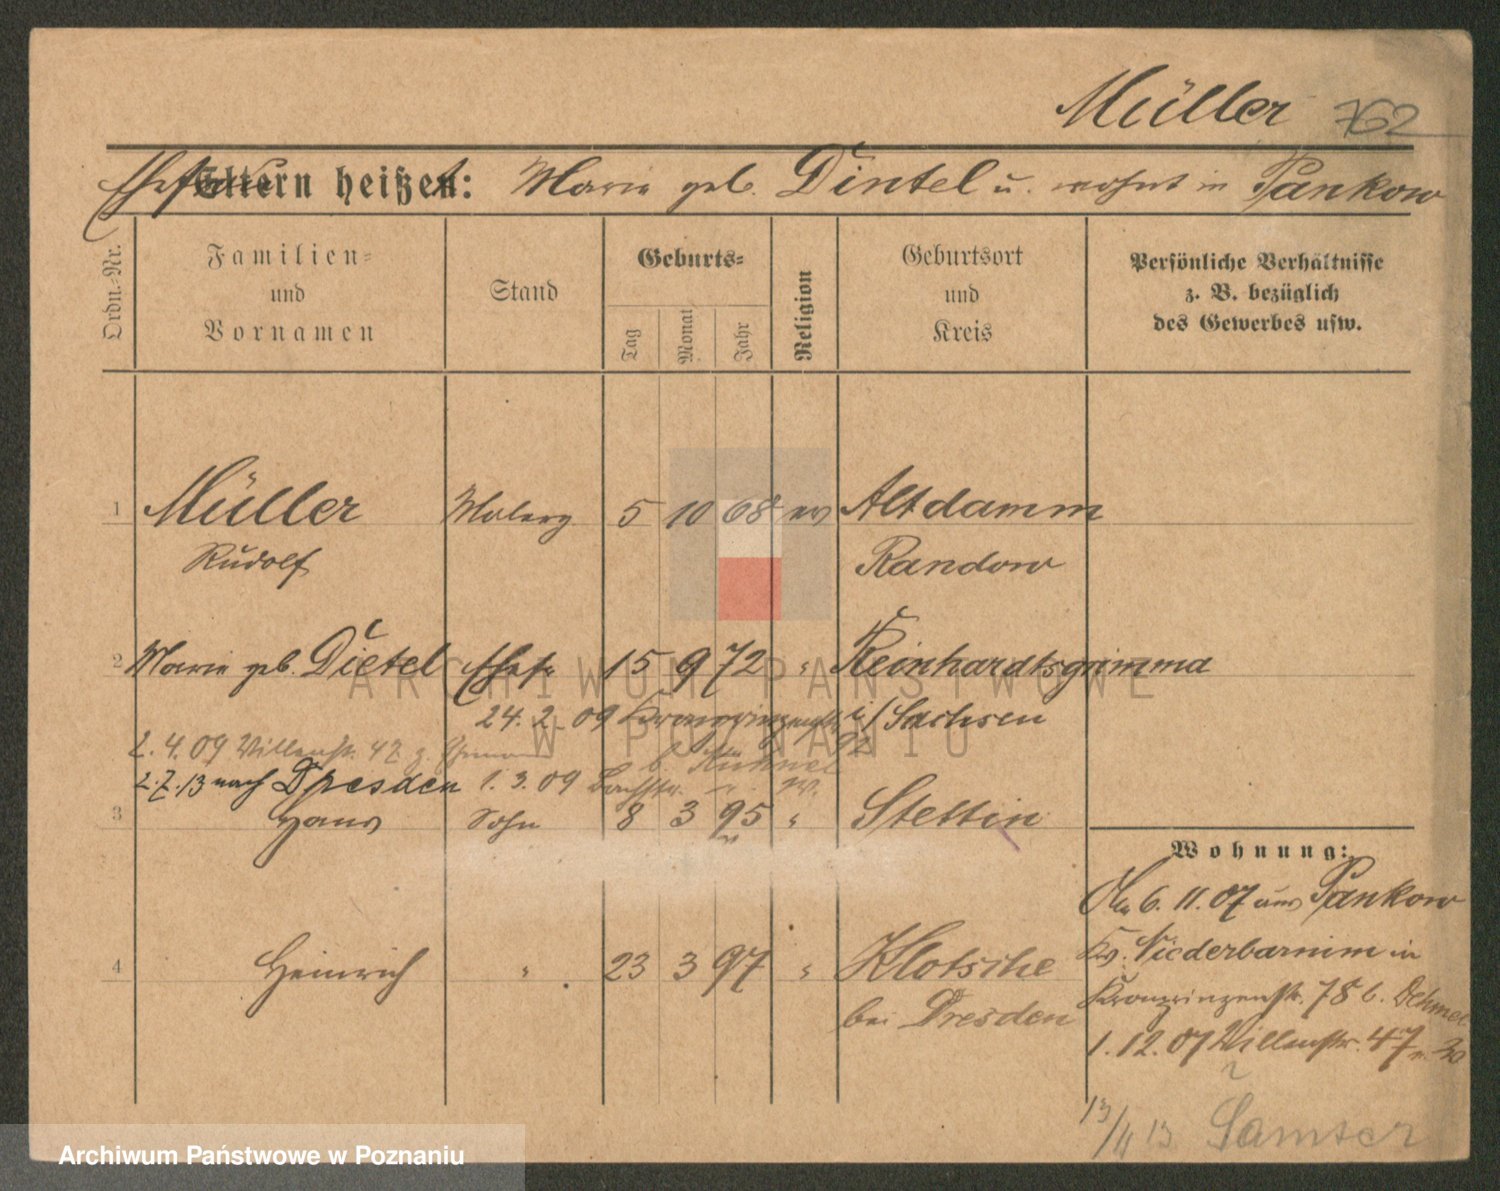 Müller 762
Eltern heißen: Marie geb. Dintel u. wohnt in Pankow
Ordn.-Nr.
Familien-
und
Vornamen
Stand
Geburts-
Tag
Monat
Jahr
Religion
Geburtsort
und
Kreis
Persönliche Verhältnisse
z. B. bezüglich
des Gewerbes usw.
1 Müller 5 10 68 ev Altdamm
Rudolf Randow
2 Marie geb. Dietel Ehefr 15 9 72 " Reinhardtsgrimma
24. 2. 09 Kronprinzenstr. i/Sachsen
92
2. 4. 09 Villenstr. 47 b. Kunnel
2.7.13 nach Dresden 1. 3. 09
3 Hans Sohn 8 3 95 " Stettin
Wohnung:
6. 11. 07 aus Pankow
4 Heinrich " 23 3 97 " Klotsche
Kr. Niederbarnim in
bei Dresden
Kronprinzenstr. 78 b.
1. 12. 07 Villenstr. 47
13/4 13 Samter
ARCHIWUM PAŃSTWOWE
W POZNANIU
Archiwum Państwowe w Poznaniu